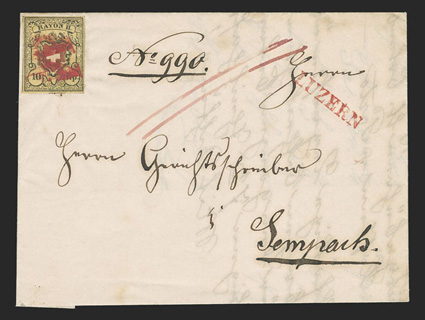 RAYON II.
10 Rp.
No 990.
Herrn
LUZERN
Herrn Gerichtsschreiber
Sempach.